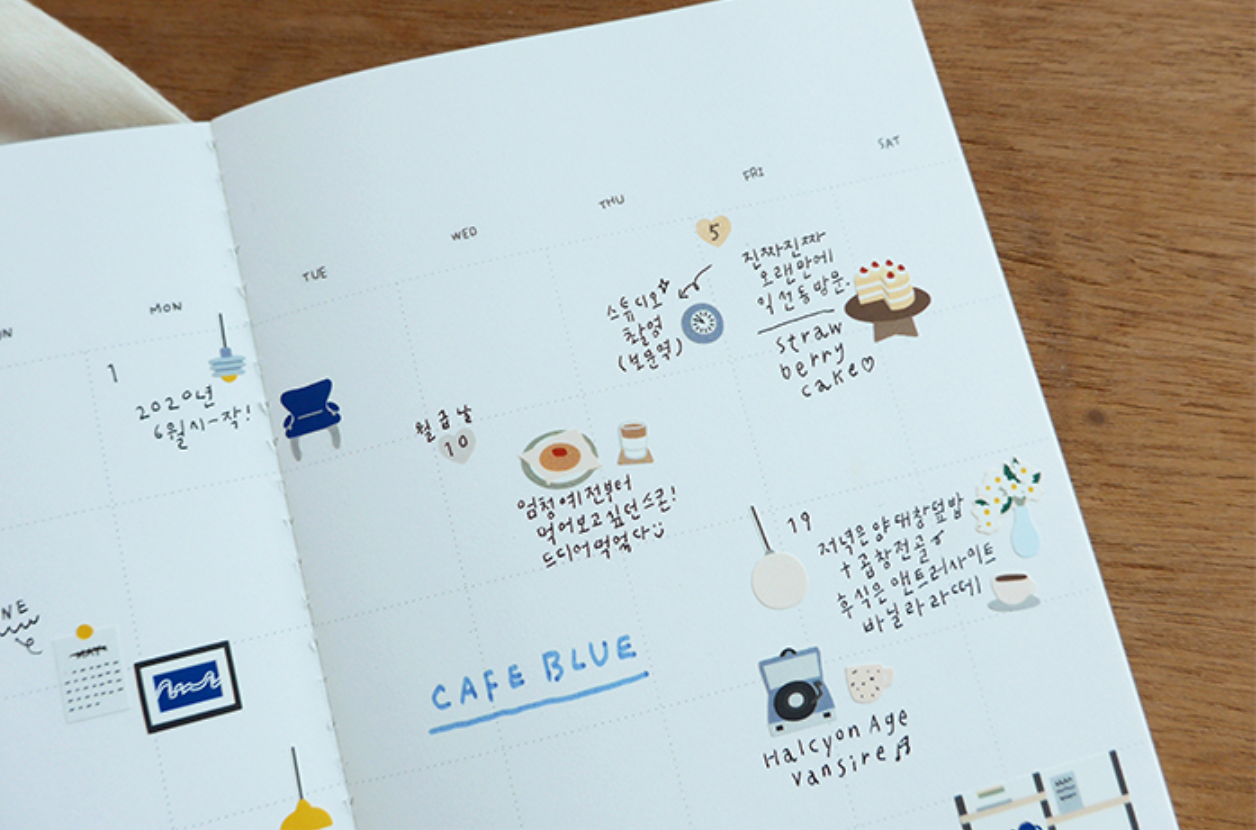 SAT
FRI
THU
WED
TUE
MON
5
진짜진짜
오랜만에
익선동방문.
straw
berry
cake♡
스튜디오
촬영
(보문역)
1
2020년
6월시-작!
월급날
10
엄청예전부터
먹어보고싶던스콘!
드디어먹었다
19
저녁은양대창덮밥
+곱창전골
후식은앤트러사이트
바닐라라떼
NE
CAFE BLUE
Halcyon Age
Vansire